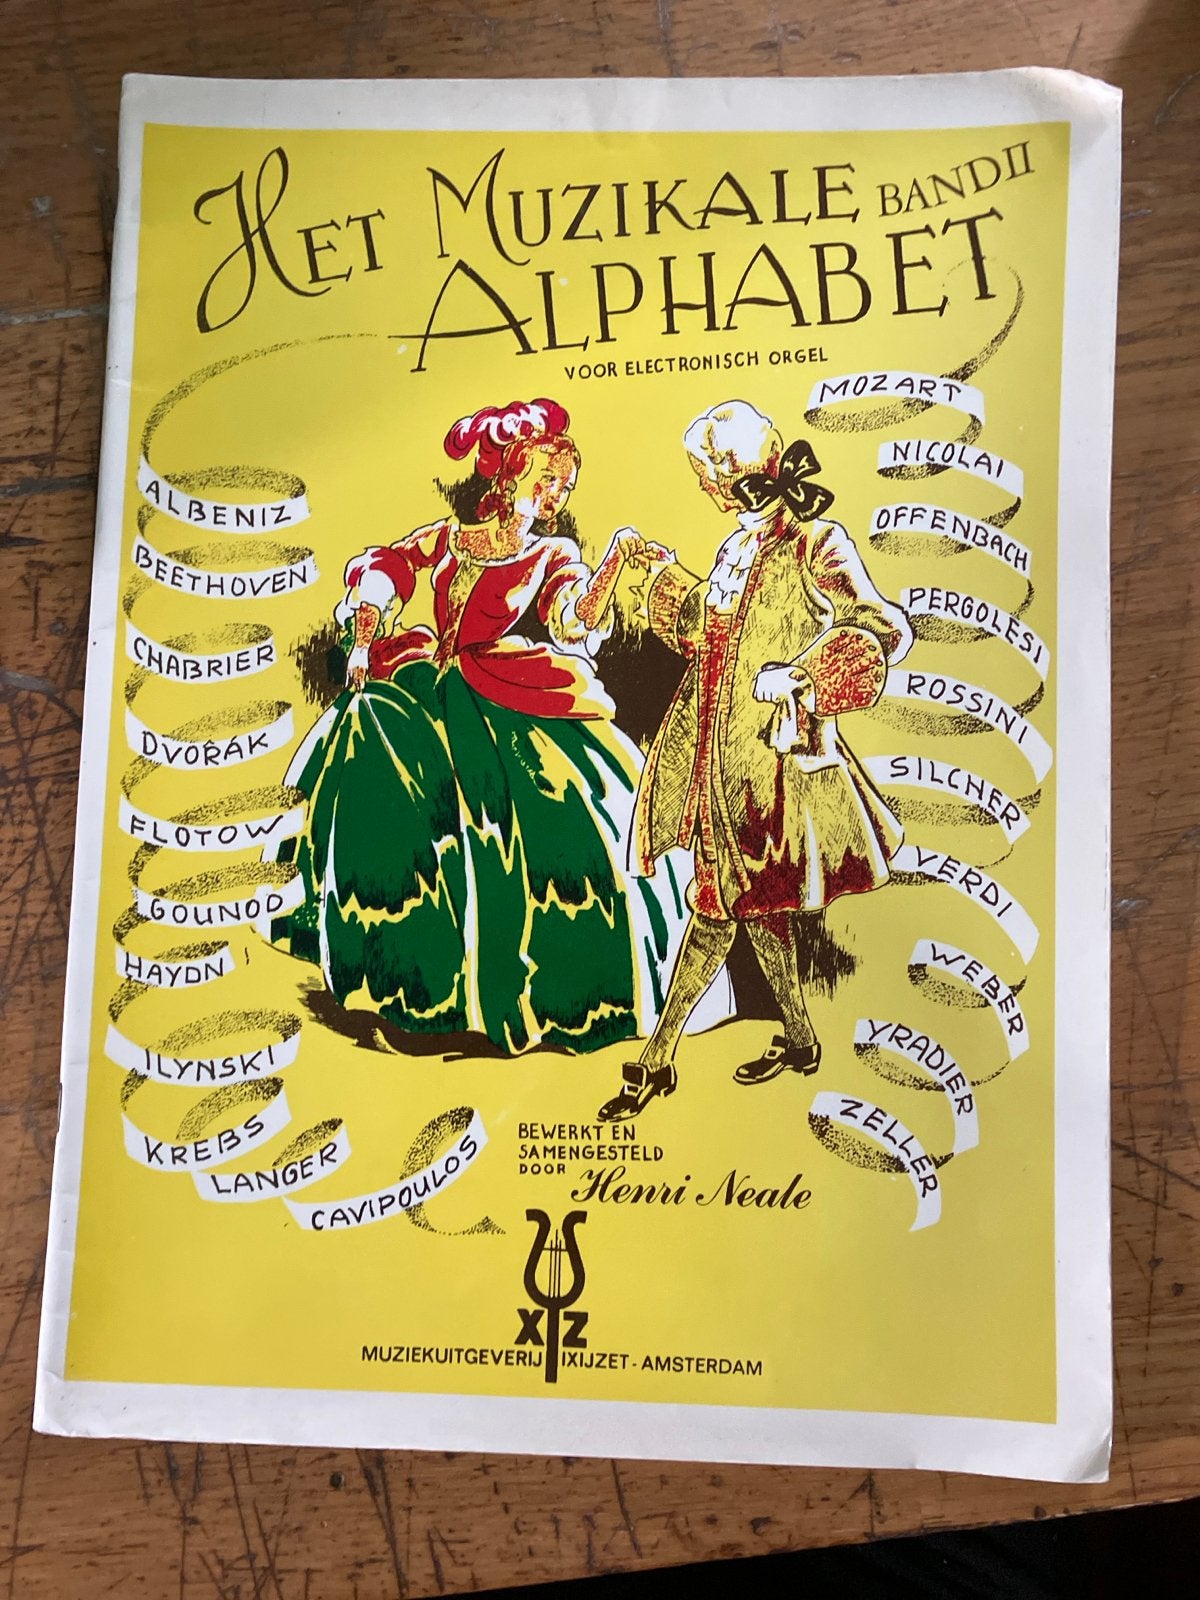 HET MUZIKALE BAND II
ALPHABET
VOOR ELECTRONISCH ORGEL
ALBENIZ
BEETHOVEN
CHABRIER
DVOŘÁK
FLOTOW
GOUNOD
HAYDN
ILYNSKI
KREBS
LANGER
CAVIPOULOS
MOZART
NICOLAI
OFFENBACH
PERGOLESI
ROSSINI
SILCHER
VERDI
WEBER
YRADIER
ZELLER
BEWERKT EN
SAMENGESTELD
DOOR Henri Neale
XYZ
MUZIEKUITGEVERIJ IXIJZET - AMSTERDAM